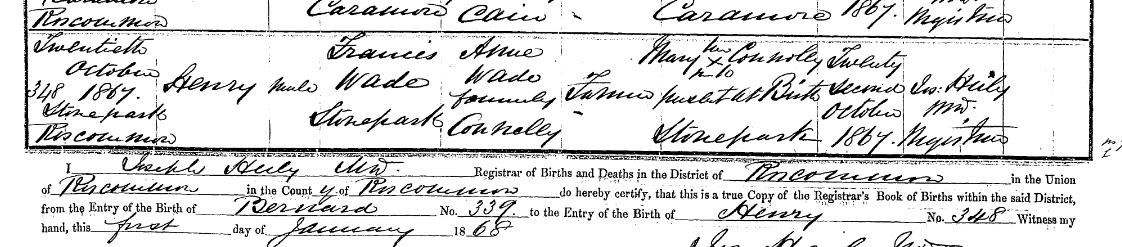 Roscommon Caramore Cain " Caramore 1867. Registrar
Twentieth Francis Anne Mary her Connolly Twenty
October Henry male Wade Wade Farmer x second Jos. Hily
348 1867. formerly mark present at Birth October MD.
Stonepark Stonepark Connelly " Stonepark 1867. Registrar
Roscommon
I Joseph Hily MD. Registrar of Births and Deaths in the District of Roscommon in the Union
of Roscommon in the County of Roscommon do hereby certify, that this is a true Copy of the Registrar's Book of Births within the said District,
from the Entry of the Birth of Bernard No. 339. to the Entry of the Birth of Henry No. 348 Witness my
hand, this first day of January 1868